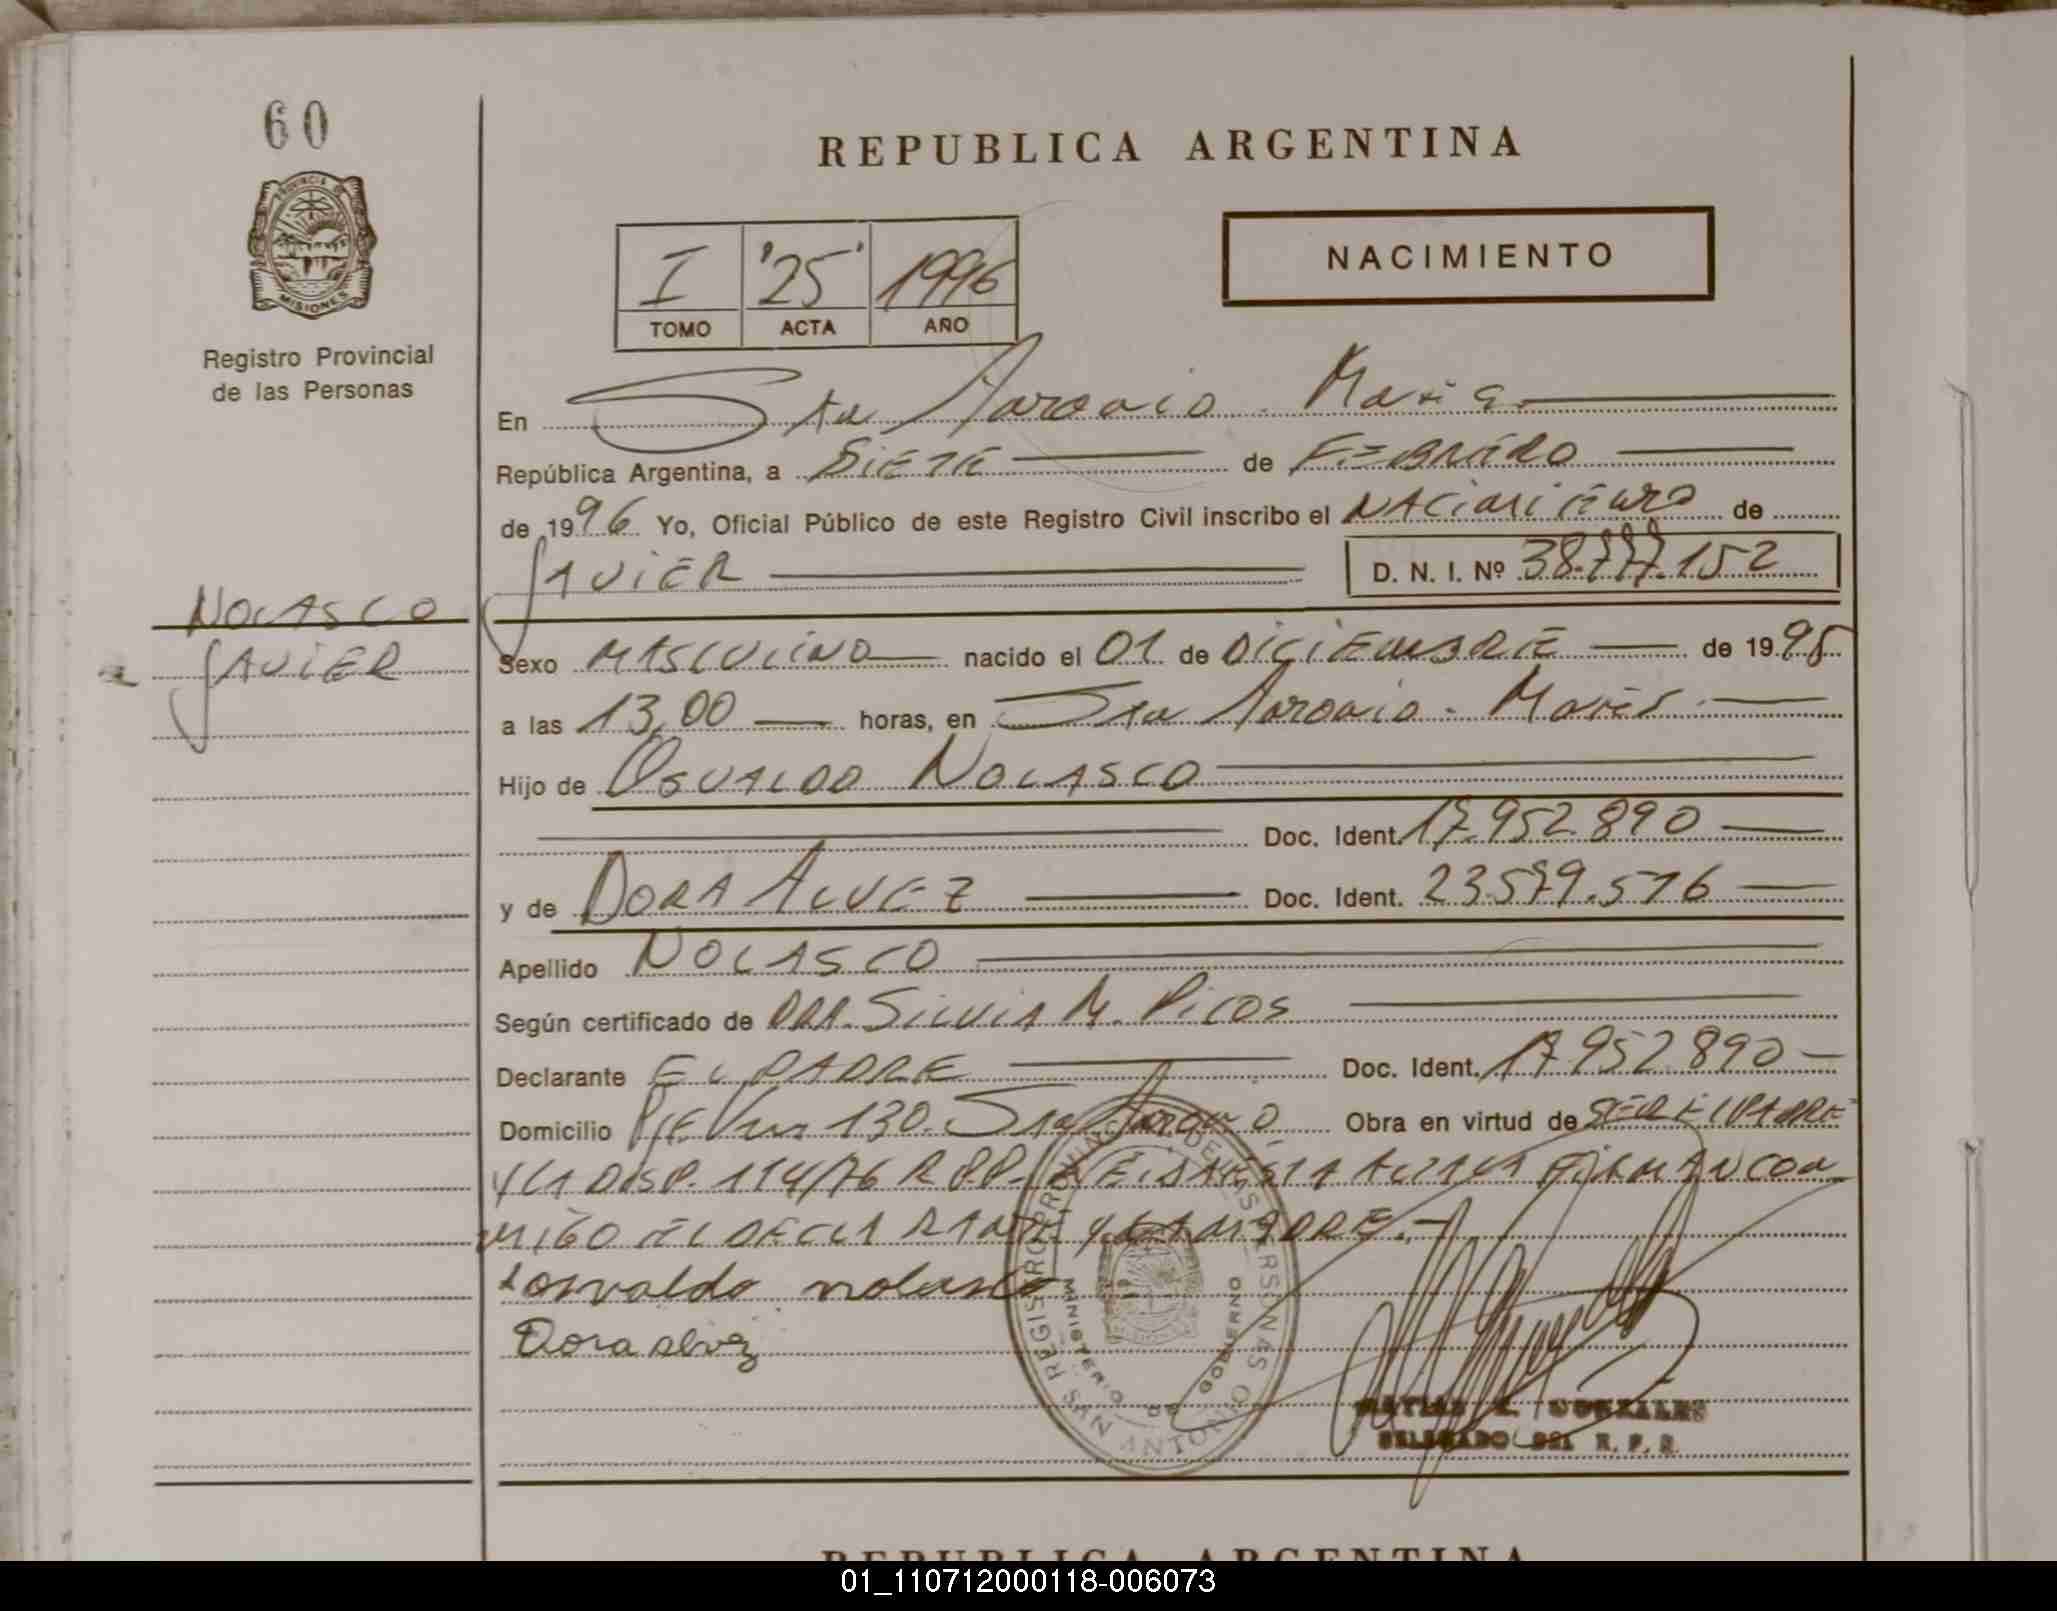 60
REPUBLICA ARGENTINA
PROVINCIA DE
MISIONES
NACIMIENTO
I '25' 1996
TOMO ACTA AÑO
Registro Provincial
de las Personas
En San Antonio. Mnes.
República Argentina, a SIETE de FEBRERO
de 1996 Yo, Oficial Público de este Registro Civil inscribo el NACIMIENTO de
JAVIER D. N. I. Nº 38.777.152
NOLASCO
JAVIER
Sexo MASCULINO nacido el 01 de DICIEMBRE de 1995
a las 13,00 horas, en San Antonio - Mnes.
Hijo de OSVALDO NOLASCO
Doc. Ident. 17.952.890
y de DORA ALVEZ Doc. Ident. 23.579.516
Apellido NOLASCO
Según certificado de DRA. SILVIA M. PICOS
Declarante EL PADRE Doc. Ident. 17.952.890
Domicilio Pje. 130. San Antonio Obra en virtud de SER EL PADRE
Y LA DISP. 114/76 R.P.P. LEIDA EL ACTA LA FIRMAN CON
MIGO EL DECLARANTE Y LA MADRE.-
osvaldo nolasco
Dora alvez
REGISTRO PROVINCIAL DE LAS PERSONAS
MINISTERIO DE GOBIERNO
SAN ANTONIO
GONZALES
DELEGADO DEL R. P. P.
REPUBLICA ARGENTINA
01_110712000118-006073